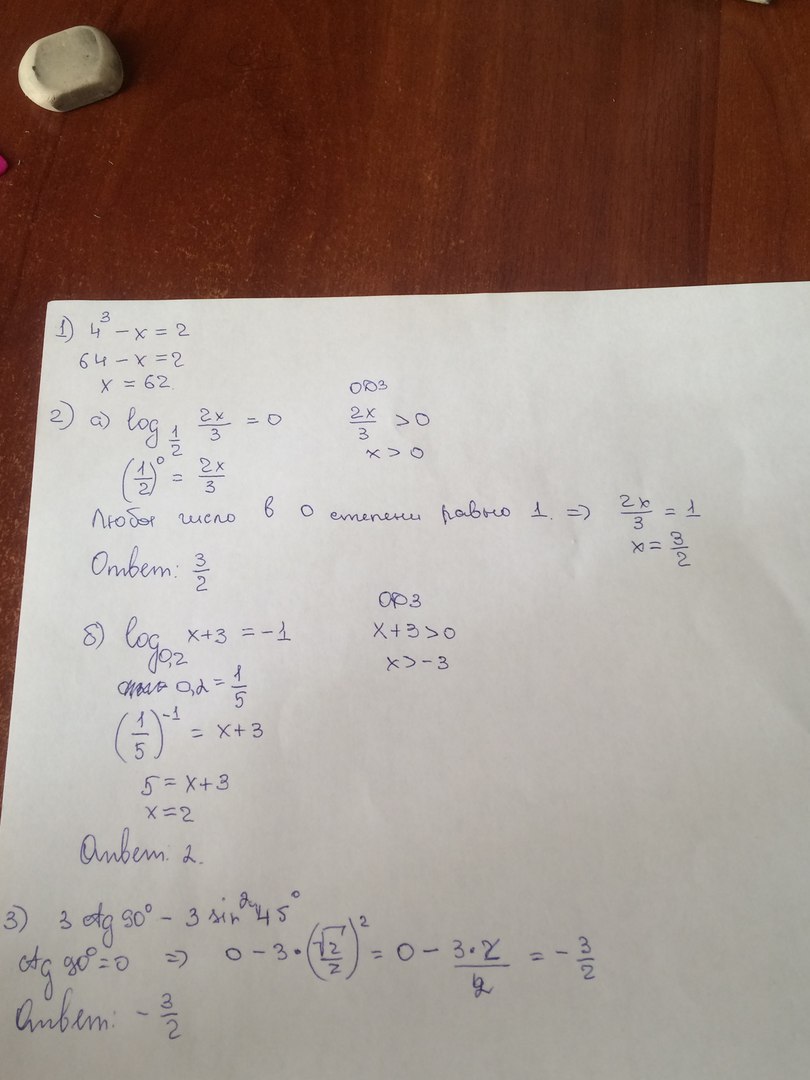 1) 4³ - x = 2
64 - x = 2
x = 62
2) а) log_{1/2} 2x/3 = 0
ОДЗ
2x/3 > 0
x > 0
(1/2)⁰ = 2x/3
Любое число в 0 степени равно 1. => 2x/3 = 1
x = 3/2
Ответ: 3/2
б) log_{0,2} x+3 = -1
ОДЗ
x+3 > 0
x > -3
0,2 = 1/5
(1/5)⁻¹ = x+3
5 = x+3
x = 2
Ответ: 2.
3) 3 ctg 90° - 3 sin² 45°
ctg 90° = 0 => 0 - 3 · (√2/2)² = 0 - 3·2/ = - 3/2
Ответ: - 3/2